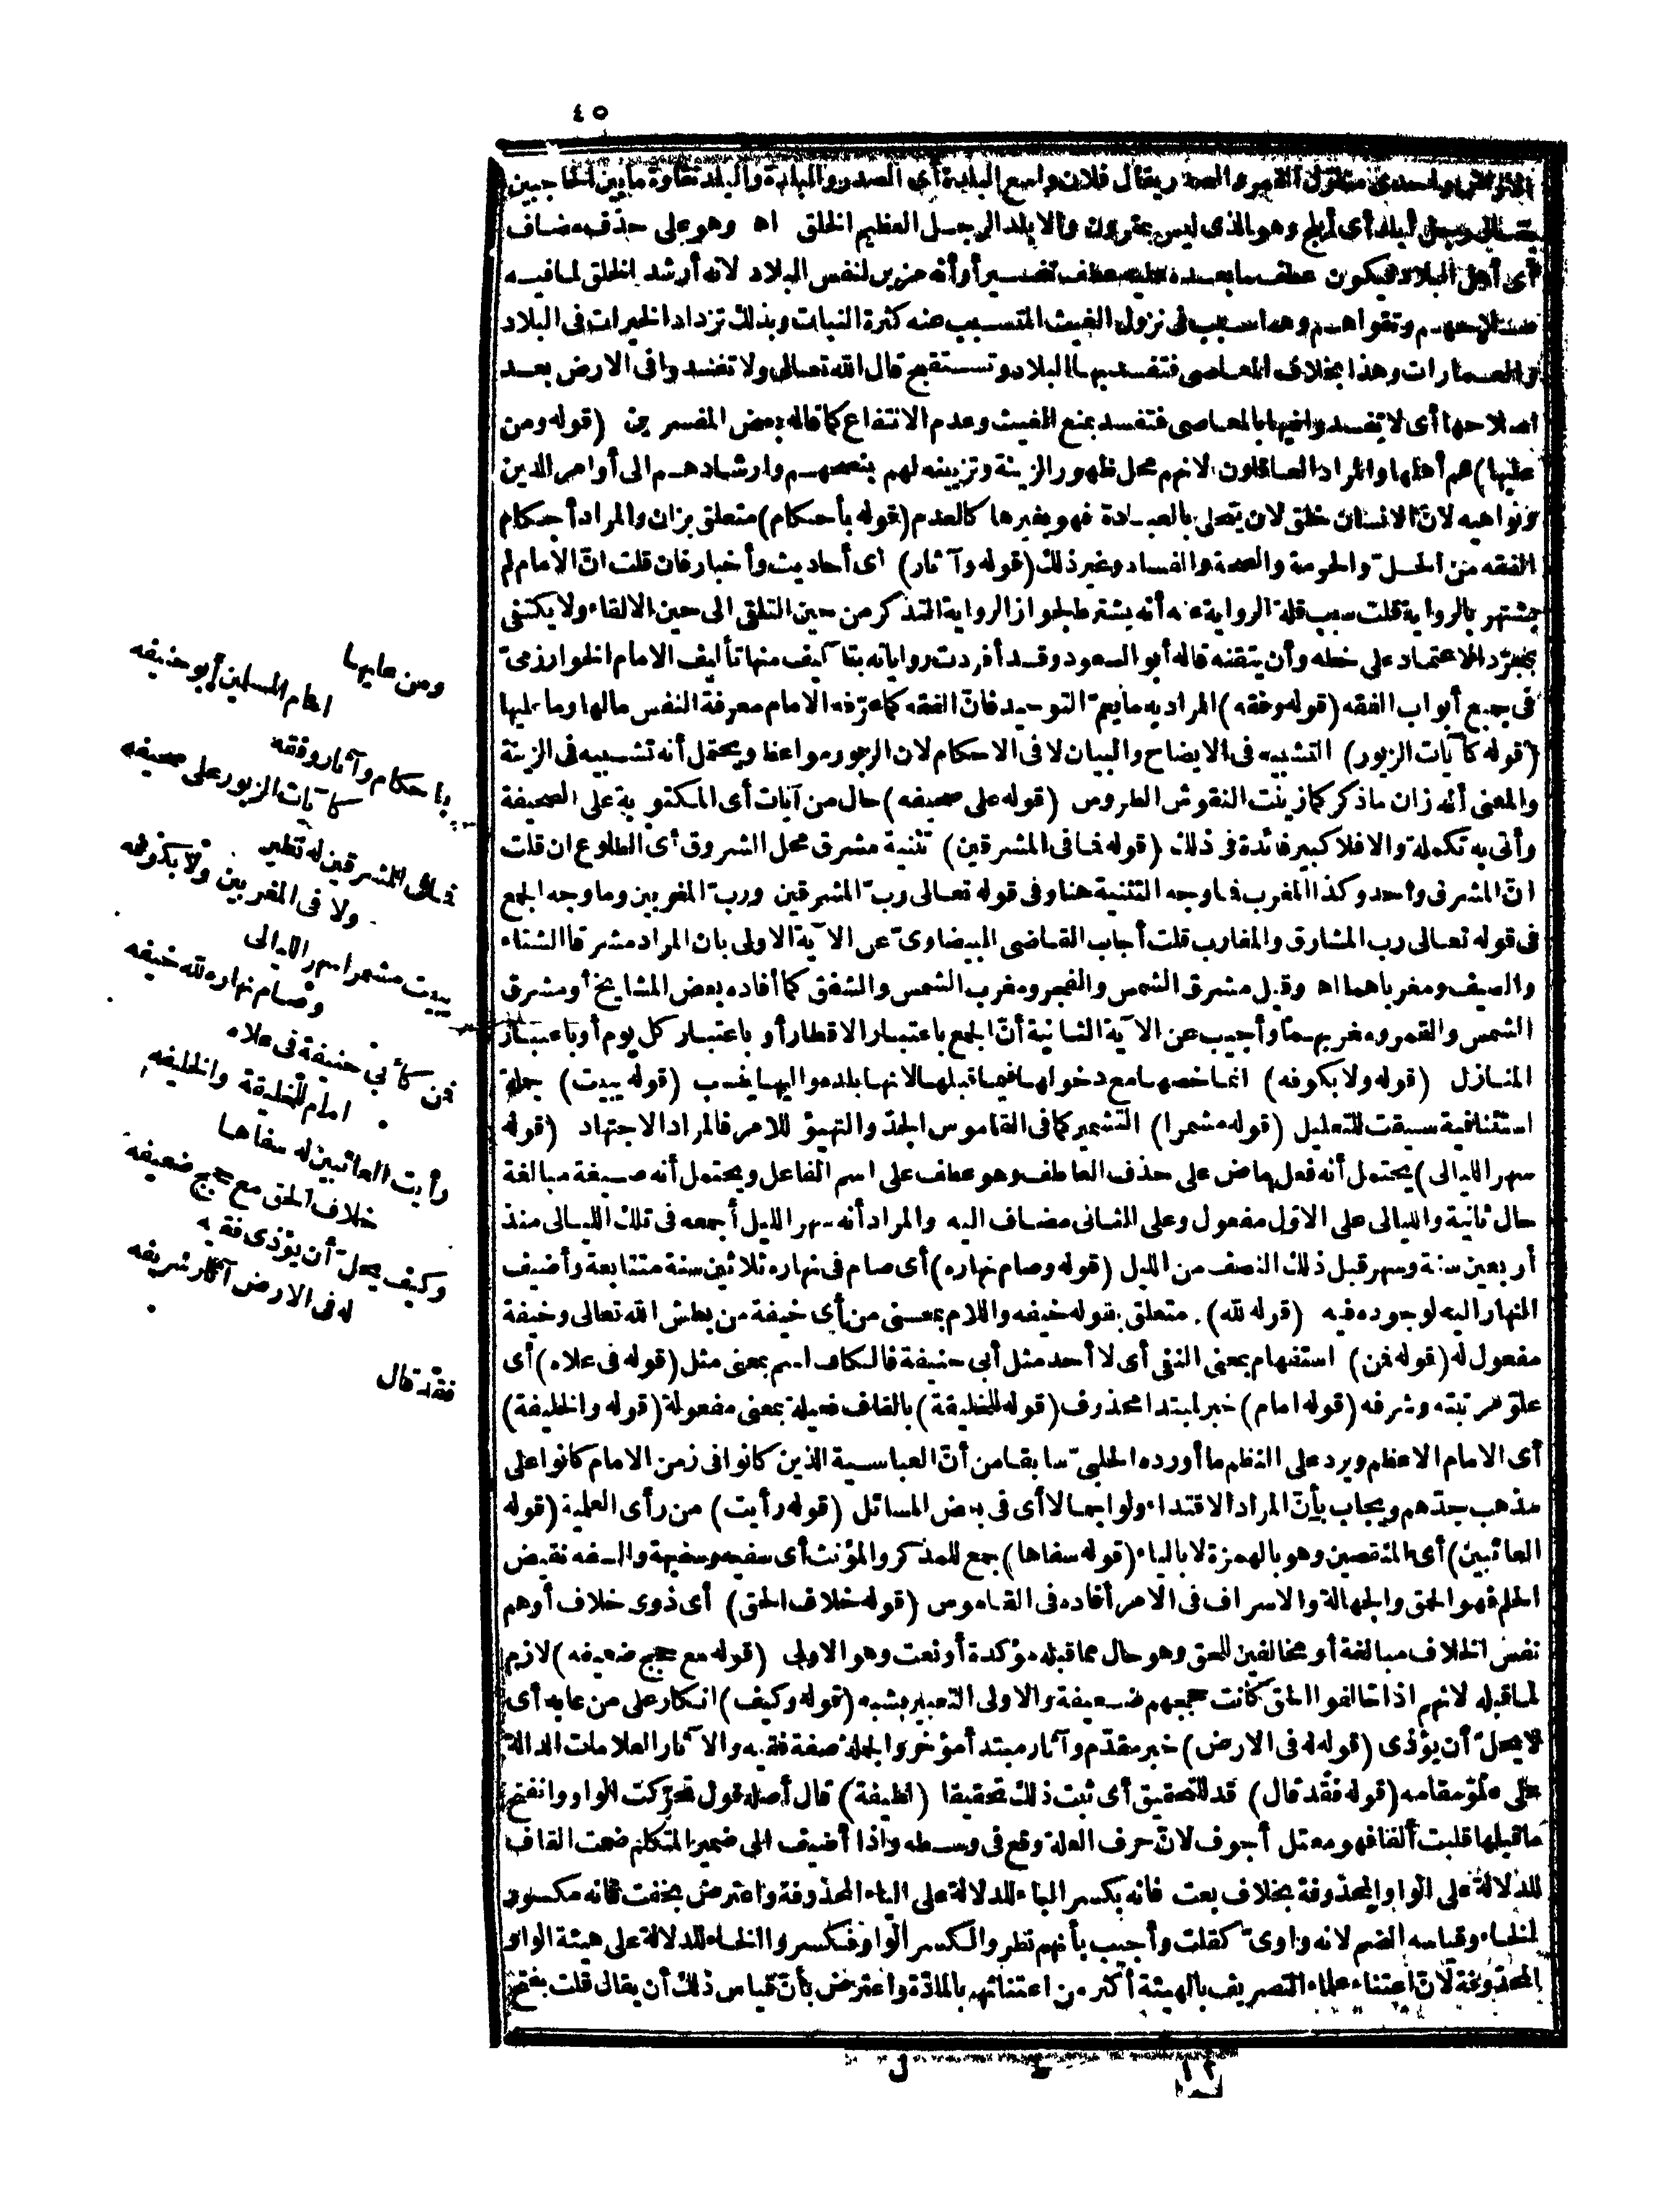 ٤٥
واسع البلدة أى الصدر والبلدة والبلد نقاوة ما بين الحاجبين
أى أبلج وهو الذى ليس بمقرون والابلد الرجل العظيم الخلق اه وهو على حذف مضاف
أى أهل البلاد فيكون عطف ما بعده عليه عطف تفسير أو أنه مزين لنفس البلاد لانه أرشد الخلق لما فيه
وتقواهم وهما سبب فى نزول الغيث المتسبب عنه كثرة النبات وبذلك تزداد الخيرات فى البلاد
والعمارات وهذا بخلاف المعاصى فتفسد بها البلاد وتستقبح قال الله تعالى ولا تفسدوا فى الارض بعد
اصلاحها أى لا تفسدوا فيها بالمعاصى فتفسد بمنع الغيث وعدم الانتفاع كما قاله بعض المفسرين (قوله ومن
عليها) هم أهلها والمراد العاقلون لانهم محل ظهور الزينة وتزيينه لهم بنصحهم وارشادهم الى أوامر الدين
ونواهيه لان الانسان خلق لان يتحلى بالعبادة فهو بغيرها كالعدم (قوله بأحكام) متعلق بزان والمراد أحكام
الفقه من الحل والحرمة والصحة والفساد وغير ذلك (قوله وآثار) أى أحاديث وأخبار فان قلت انّ الامام لم
يشتهر بالرواية قلت سبب قلة الرواية عنه أنه يشترط لجواز الرواية التذكر من حين التلقى الى حين الالقاء ولا يكتفى
بمجرّد الاعتماد على خطه وأن يتقنه قاله أبو السعود وقد أفردت رواياته بتآكيف منها تأليف الامام الخوارزمىّ
فى جميع أبواب الفقه (قوله وفقه) المراد به ما يعمّ التوحيد فانّ الفقه كما عرّفه الامام معرفة النفس مالها وما عليها
(قوله كآيات الزبور) التشبيه فى الايضاح والبيان لا فى الاحكام لان الزبور مواعظ ويحتمل أنه تشبيه فى الزينة
والمعنى أنه زان ماذكر كما زينت النقوش الطروس (قوله على صحيفه) حال من آيات أى المكتوبة على الصحيفة
وأتى به تكملة والا فلا كبير فائدة فى ذلك (قوله فما فى المشرقين) تثنية مشرق محل الشروق أى الطلوع ان قلت
انّ المشرق واحد وكذا المغرب فما وجه التثنية هنا وفى قوله تعالى ربّ المشرقين وربّ المغربين وما وجه الجمع
فى قوله تعالى رب المشارق والمغارب قلت أجاب القاضى البيضاوىّ عن الآية الاولى بان المراد مشرقا الشتاء
والصيف ومغرباهما اه وقيل مشرق الشمس والفجر ومغرب الشمس والشفق كما أفاده بعض المشايخ أو مشرق
الشمس والقمر ومغربهما وأجيب عن الآية الثانية أنّ الجمع باعتبار الاقطار أو باعتبار كل يوم أو باعتبار
المنازل (قوله ولا بكوفه) انما خصها مع دخولها فيما قبلها لانها بلده واليها ينسب (قوله يبيت) جملة
استئنافية سيقت للتعليل (قوله مشمرا) التشمير كما فى القاموس الجدّ والتهيؤ للامر فالمراد الاجتهاد (قوله
سهر الليالى) يحتمل أنه فعل ماض على حذف العاطف وهو عطف على اسم الفاعل ويحتمل أنه صيغة مبالغة
حال ثانية والليالى على الاوّل مفعول وعلى الثانى مضاف اليه والمراد أنه سهر الليل أجمعه فى تلك الليالى منذ
أربعين سنة وسهر قبل ذلك النصف من الليل (قوله وصام نهاره) أى صام فى نهاره ثلاثين سنة متتابعة وأضيف
النهار اليه لوجوده فيه (قوله لله) متعلق بقوله خيفه واللام بمعنى من أى خيفة من بطش الله تعالى وخيفة
مفعول له (قوله فمن) استفهام بمعنى النفى أى لا أحد مثل أبى حنيفة فالكاف اسم بمعنى مثل (قوله فى علاه) أى
علوّ مرتبته وشرفه (قوله امام) خبر لمبتدا محذوف (قوله للخليقة) بالقاف فعيلة بمعنى مفعولة (قوله والخليفة)
أى الامام الاعظم ويرد على النظم ما أورده الحلبىّ سابقا من أنّ العباسية الذين كانوا فى زمن الامام كانوا على
مذهب جدّهم ويجاب بأنّ المراد الاقتداء ولو اجمالا أى فى بعض المسائل (قوله رأيت) من رأى العلمية (قوله
العائبين) أى المنقصين وهو بالهمزة لا بالياء (قوله سفاها) جمع للمذكر والمؤنث أى سفيه وسفيهة والسفه نقيض
الحلم فهو الحمق والجهالة والاسراف فى الامر أفاده فى القاموس (قوله خلاف الحق) أى ذوى خلاف أو هم
نفس الخلاف مبالغة أو مخالفين للحق وهو حال مما قبله مؤكدة أو نعت وهو الاولى (قوله مع حجج ضعيفه) لازم
لما قبله لانهم اذا خالفوا الحق كانت حججهم ضعيفة والاولى التعبير بشبه (قوله وكيف) انكار على من عابه أى
لا يحلّ أن يؤذى (قوله له فى الارض) خبر مقدّم وآثار مبتدأ مؤخر والجملة صفة فقيه والآثار العلامات الدالة
على علوّ مقامه (قوله فقد قال) قد للتحقيق أى ثبت ذلك تحقيقا (لطيفة) قال أصله قول تحرّكت الواو وانفتح
ما قبلها قلبت ألفا فهو معتل أجوف لانّ حرف العلة وقع فى وسطه واذا أضيف الى ضمير المتكلم ضمت القاف
للدلالة على الواو المحذوفة بخلاف بعت فانه بكسر الباء للدلالة على الياء المحذوفة واعترض بخفت فانه مكسور
الخاء وقياسه الضم لانه واوىّ كقلت وأجيب بأنهم نظروا لكسر الواو فكسروا الخاء للدلالة على هيئة الواو
المحذوفة لانّ اعتناء علماء التصريف بالهيئة أكثر من اعتنائهم بالمادّة واعترض بأنّ قياس ذلك أن يقال قلت بفتح
ومن عليها
امام المسلمين أبو حنيفه
باحكام وآثار وفقه
كآيات الزبور على صحيفه
فما فى المشرقين له نظير
ولا فى المغربين ولا بكوفه
يبيت مشمرا سهر الليالى
وصام نهاره لله خيفه
فمن كأبي حنيفة فى علاه
امام للخليقة والخليفه
رأيت العائبين له سفاها
خلاف الحق مع حجج ضعيفه
وكيف يحلّ أن يؤذى فقيه
له فى الارض آثار شريفه
فقد قال
١٢ ط ل